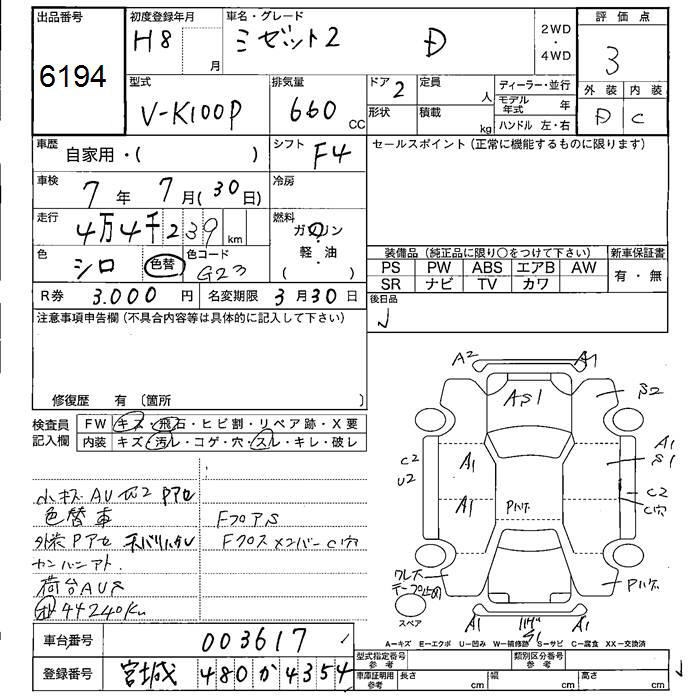 出品番号
6194
初度登録年月
H8 月
車名・グレード
ミゼット2 D
2WD
・
4WD
評価点
3
外装 内装
D C
型式
V-K100P
排気量
660 CC
ドア 2
形状
定員 人
積載 kg
ディーラー・並行
モデル年式 年
ハンドル 左・右
車歴
自家用・( )
シフト
F4
セールスポイント (正常に機能するものに限ります)
車検
7年 7月(30日)
冷房
走行
4万4千239 km
燃料
ガソリン
軽・油
( )
色
シロ 色替
色コード
G23
装備品 (純正品に限り○をつけて下さい)
新車保証書
PS PW ABS エアB AW
SR ナビ TV カワ
有・無
R券 3.000 円
名変期限 3月30日
後日品
注意事項申告欄 (不具合内容等は具体的に記入して下さい)
修復歴 有 (箇所 )
検査員
記入欄
FW キズ・飛石・ヒビ割・リペア跡・X要
内装 キズ・汚レ・コゲ・穴・スレ・キレ・破レ
小キズ AU
色替車
FフロアS
Fクロスメンバー C穴
荷台AUS
44240Km
A2 A1
AS1
S2
A1
S1
C2
U2
A1
A1
Pハゲ
C2
C穴
ワレ大
テープ止め
Pハゲ
スペア
A1
S1
A1
A=キズ E=エクボ U=凹み W=補修跡 S=サビ C=腐食 XX=交換済
車台番号 003617
登録番号 宮城 480 か 4354
型式指定番号
参考
類別区分番号
参考
車庫証明用
参考
長さ cm 幅 cm 高さ cm